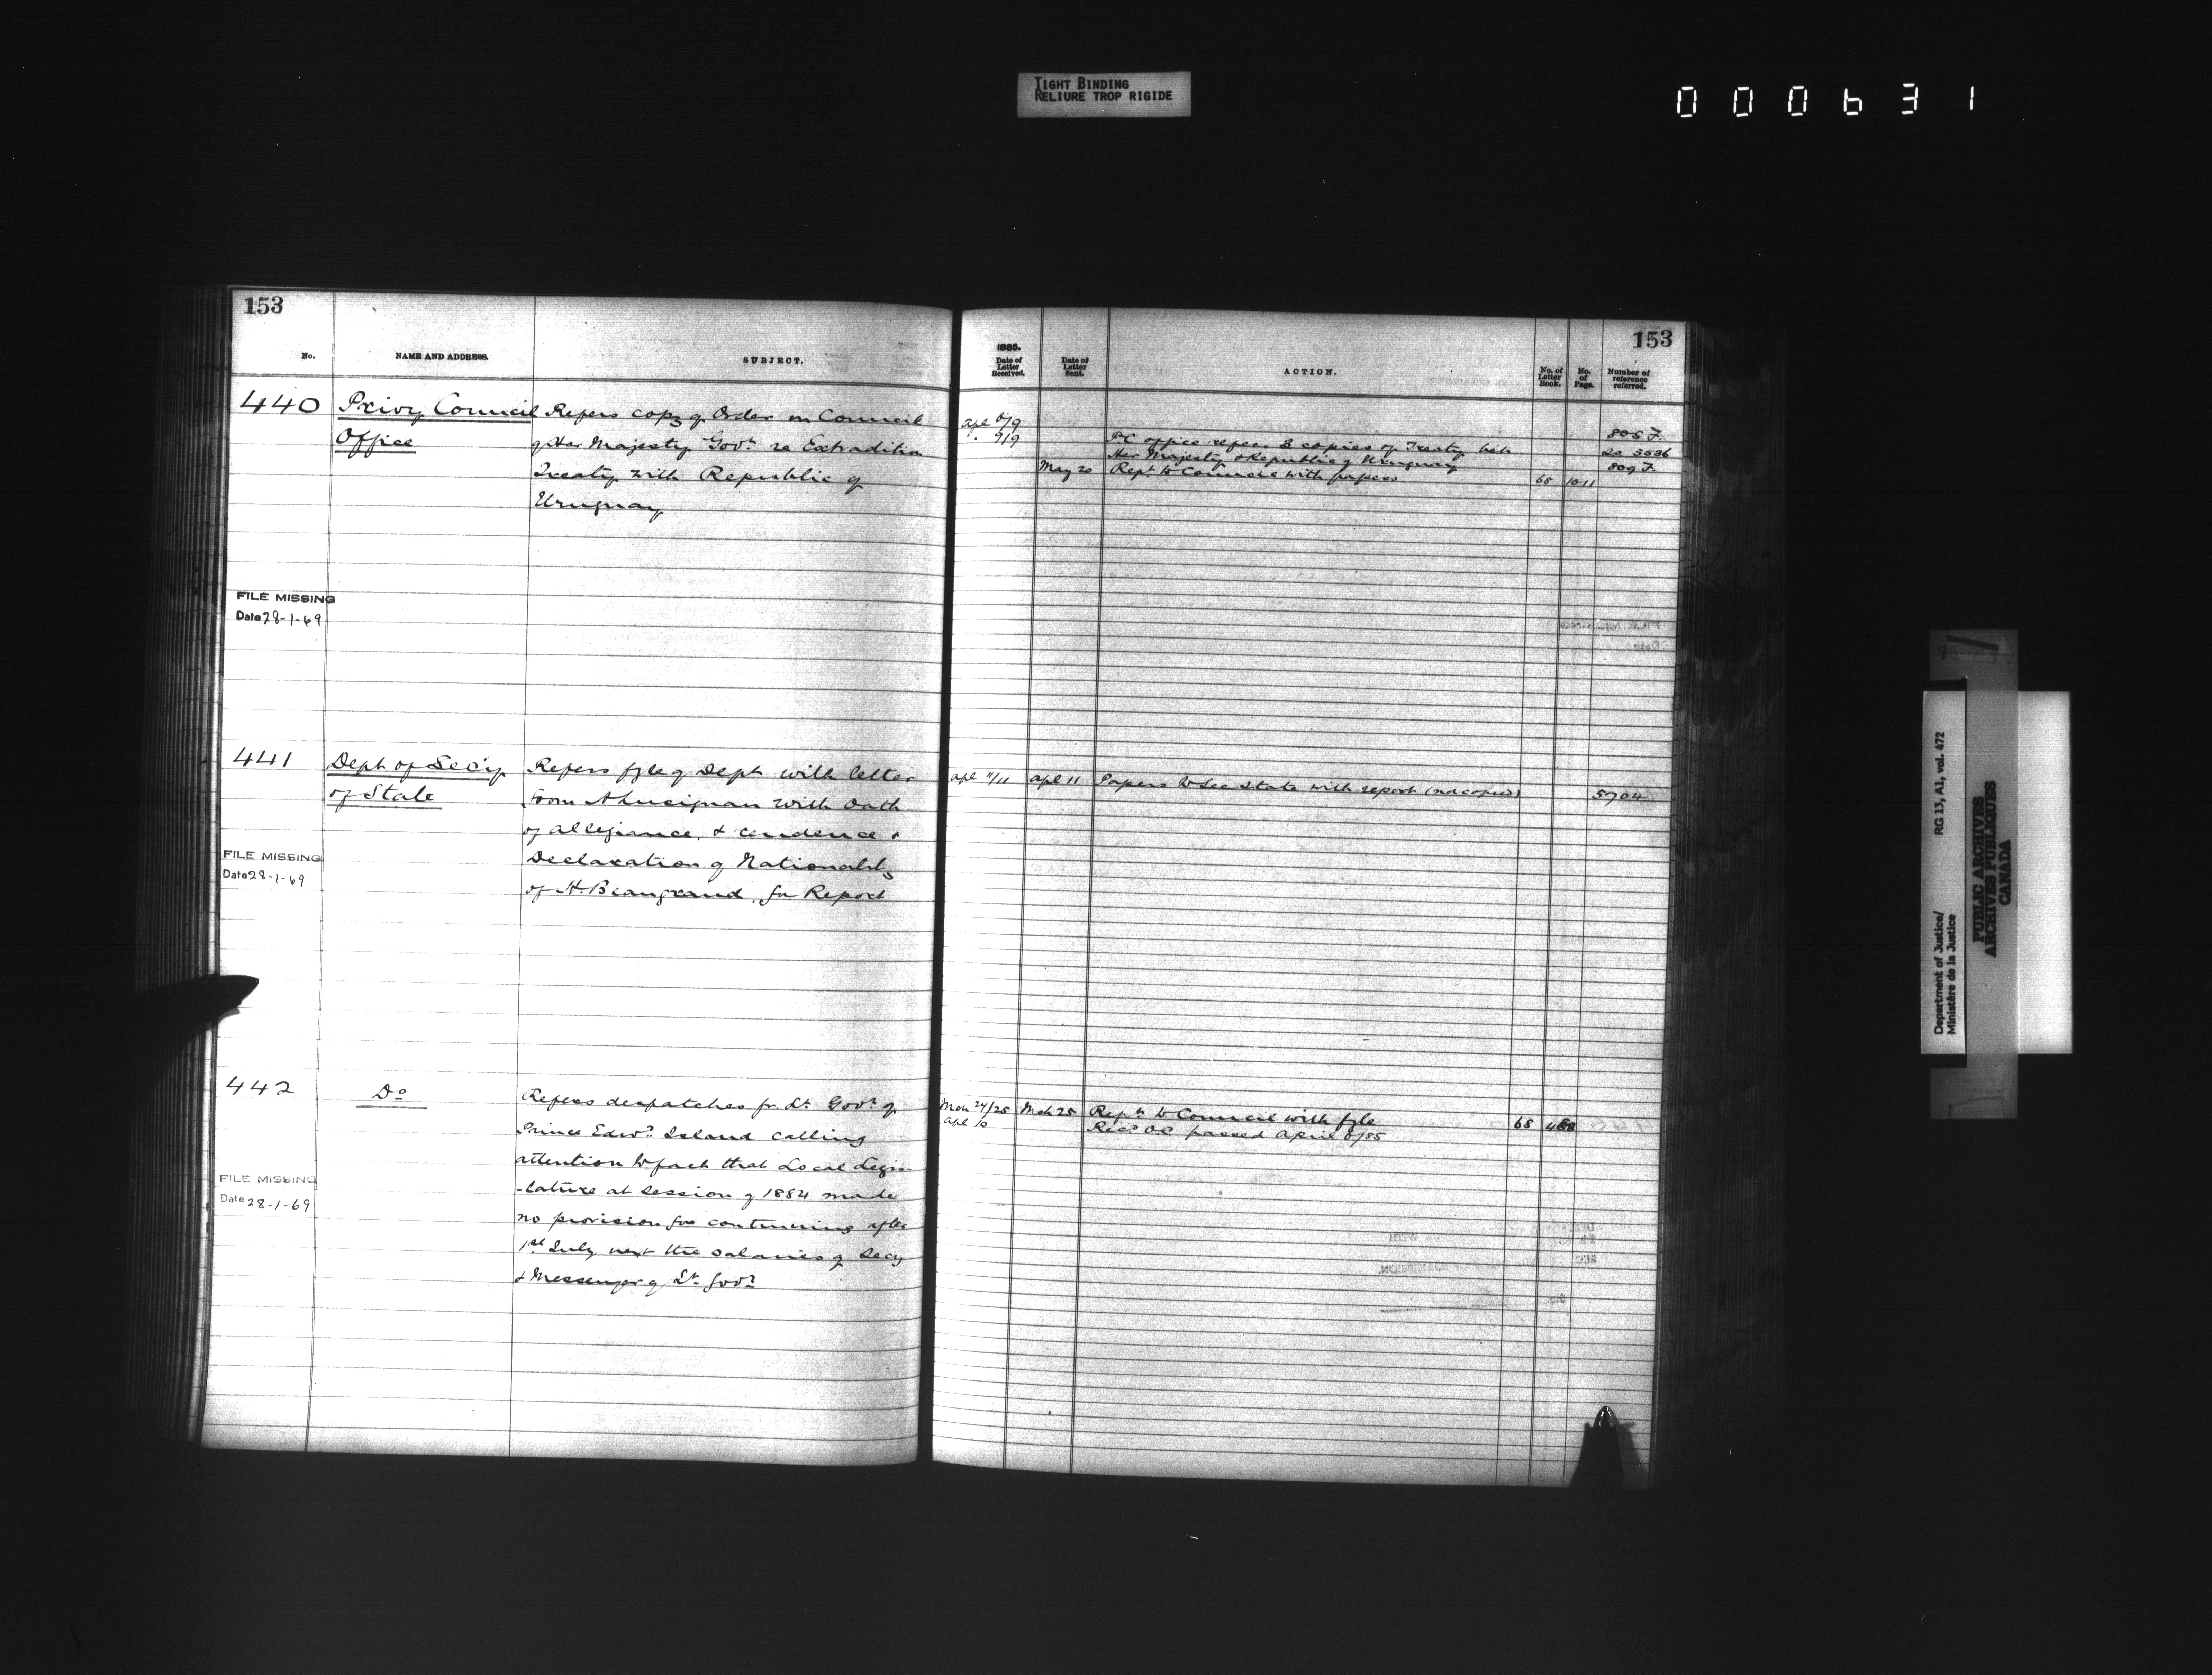 TIGHT BINDING
RELIURE TROP RIGIDE
000631
153
No. NAME AND ADDRESS. SUBJECT.
440 Privy Council Refers copy of Order in Council
Office of Her Majesty Govt re Extradition
Treaty with Republic of
Uruguay
FILE MISSING
Date 28-1-69
441 Dept of Secy Refers fyle of Dept with letter
of State from A Lusignan with Oath
of allegiance, &
Declaration of Nationality
of H. Beaugrand, for Report
FILE MISSING
Date 28-1-69
442 Do Refers despatches fr. Lt Govr of
Prince Edwd Island calling
attention to fact that Local Legis-
-lature at session of 1884 made
no provision for continuing after
1st July next the salaries of Secy
& Messenger of Lt Govr
FILE MISSING
Date 28-1-69
153
1885.
Date of Letter Received. Date of Letter Sent. ACTION. No. of Letter Book. No. of Page. Number of reference referred.
Apl 6/9 805 F.
9/9 PC office refers 3 copies of Treaty bet. 5536
Her Majesty & Republic of Uruguay 809 F.
May 20 Rept to Council with papers 68 1011
Apl 11/11 Apl 11 Papers to Sec State with report (not copied) 5704
Mch 24/25 Mch 25 Rept to Council with fyle 68
Apl 10 Recd O.C. passed April 8/85
Department of Justice/ RG 13, A1, vol. 472
Ministère de la Justice
PUBLIC ARCHIVES
ARCHIVES PUBLIQUES
CANADA